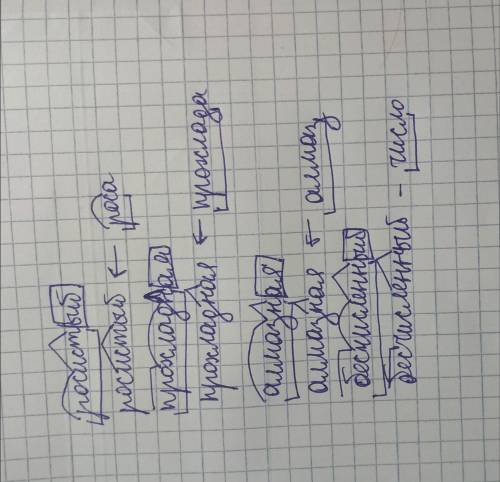 росистый
росистый ← роса
прохладная
прохладная ← прохлада
алмазная
алмазная ← алмаз
бесчисленный
бесчисленный - число